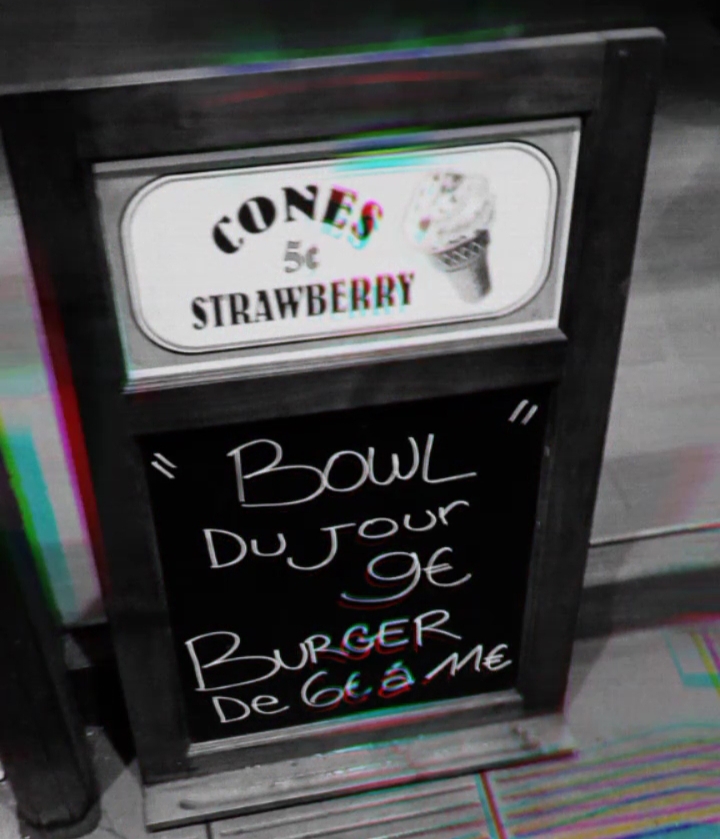 CONES
5¢
STRAWBERRY
" BOWL "
Du Jour
9€
BURGER
De 6€ à 11€